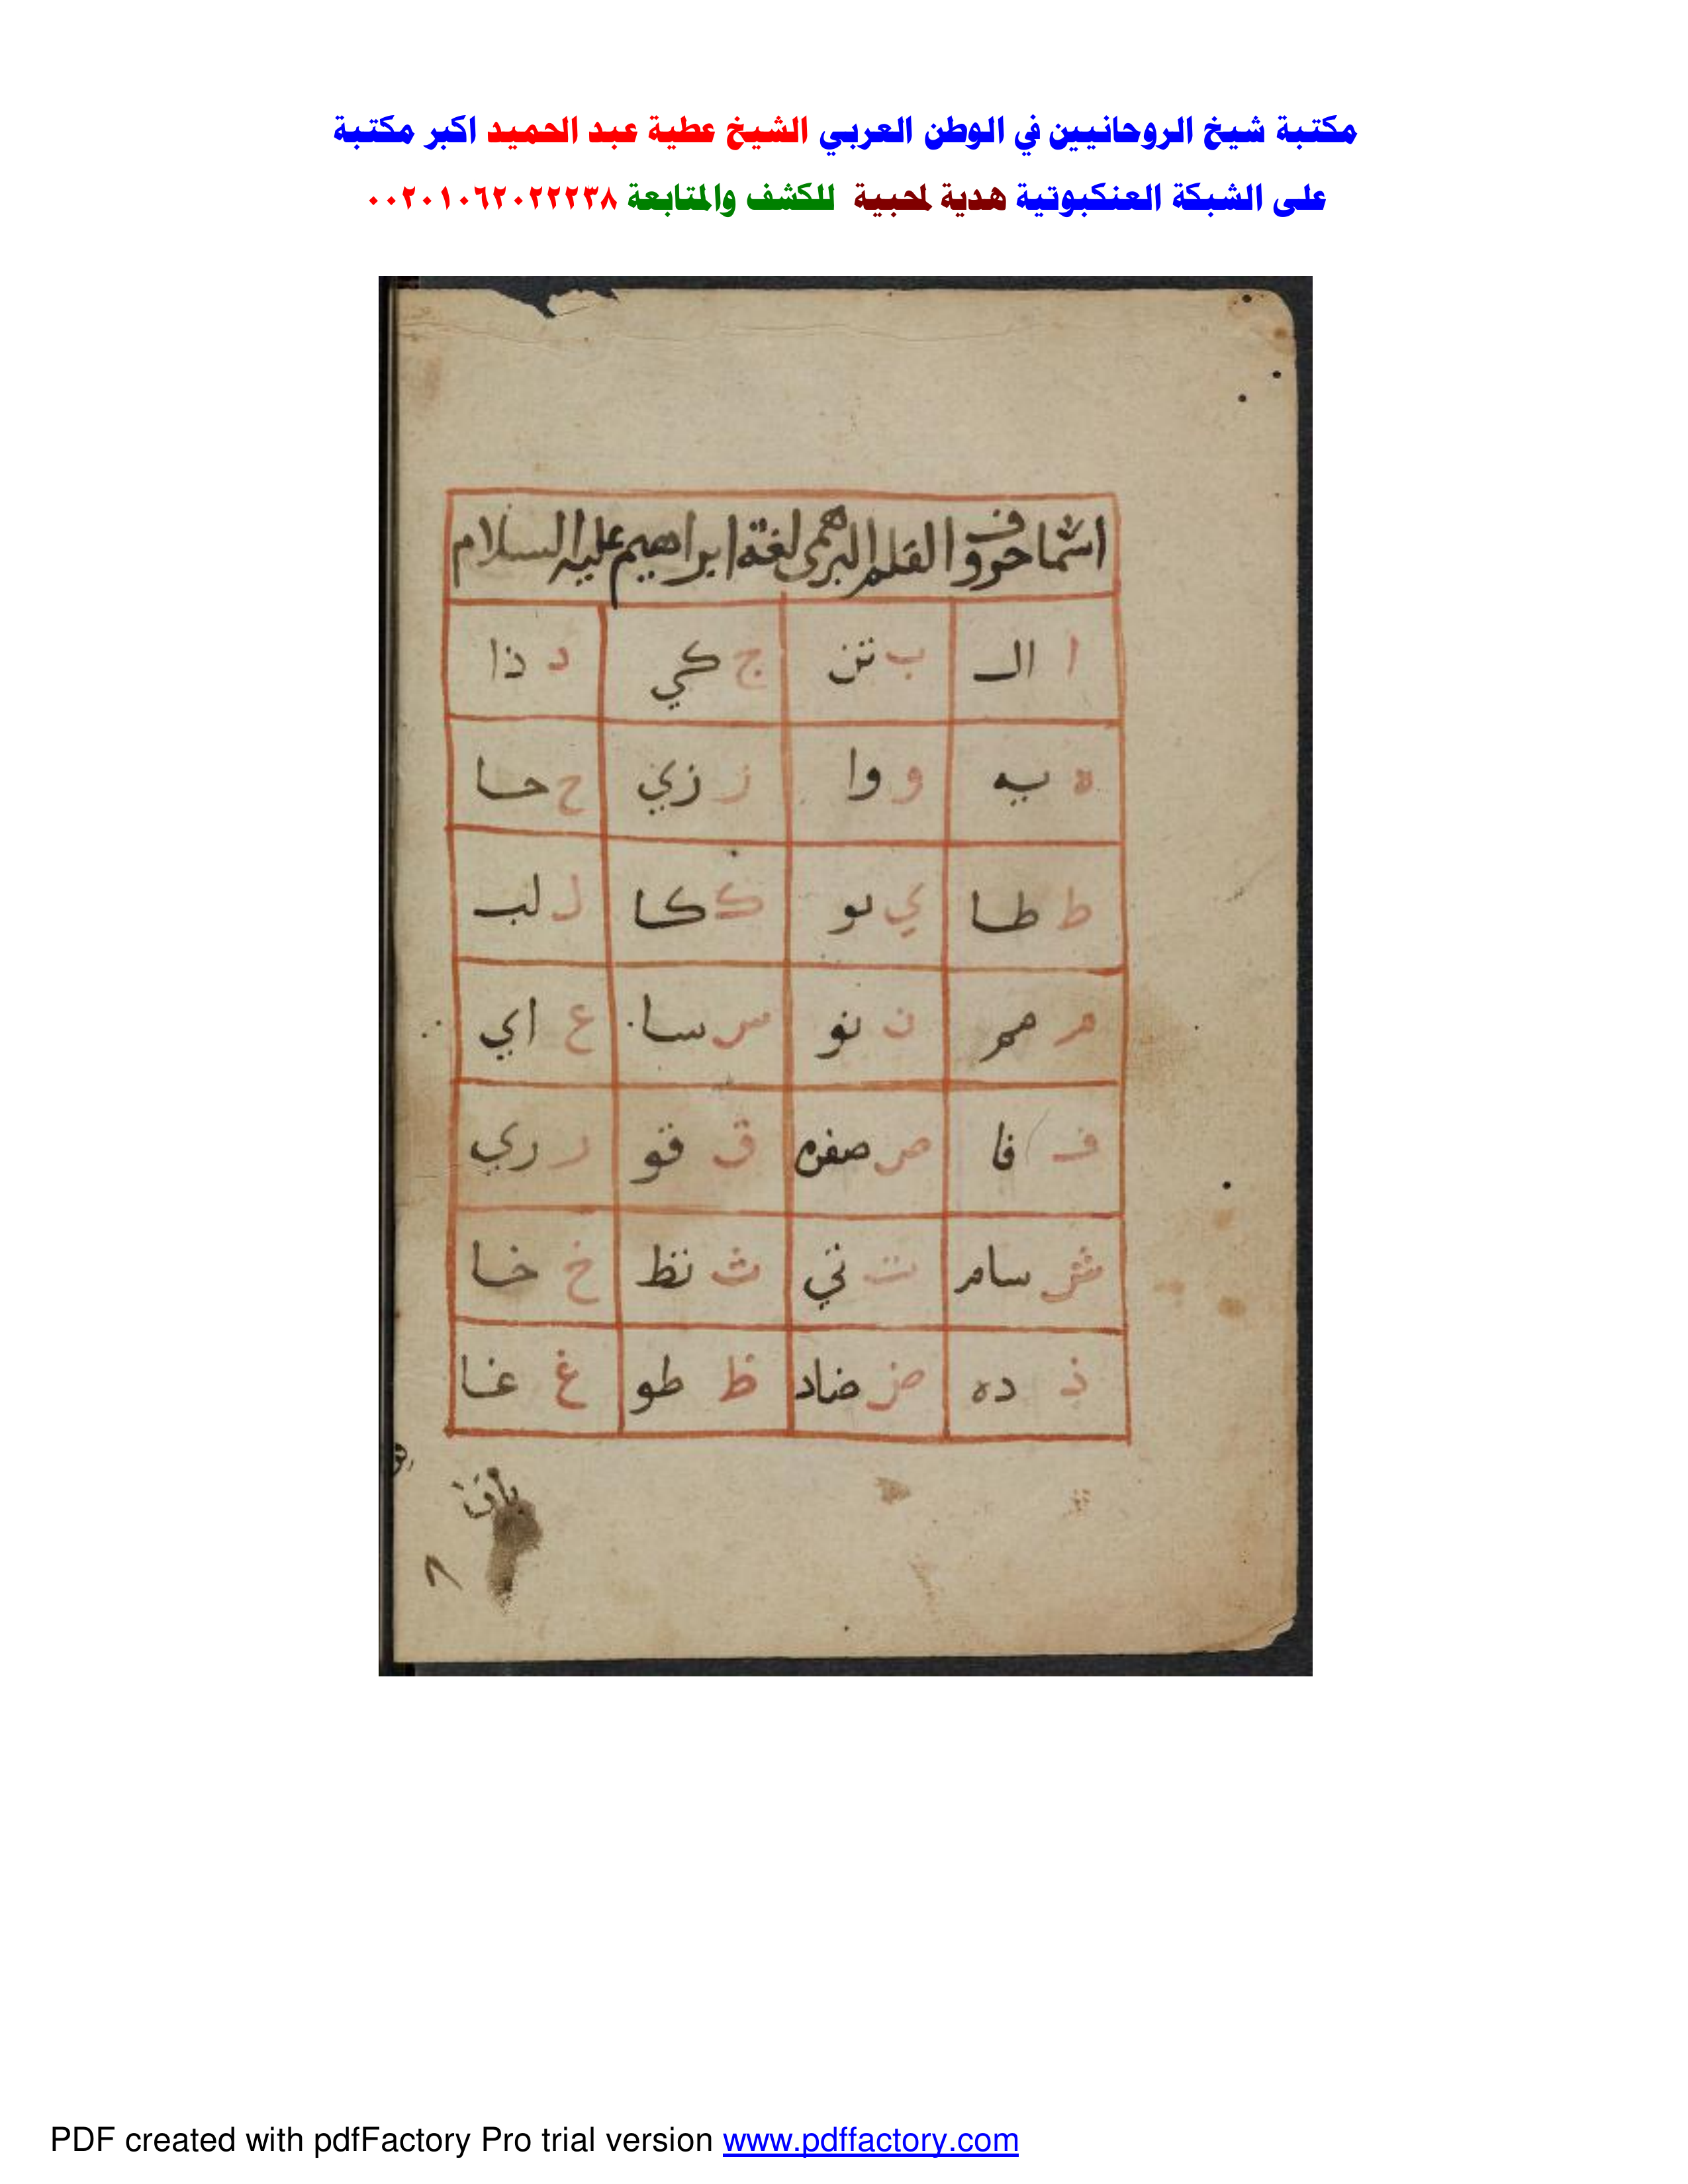 مكتبة شيخ الروحانيين في الوطن العربي الشيخ عطية عبد الحميد اكبر مكتبة
على الشبكة العنكبوتية هدية لمحبية للكشف والمتابعة ٠٠٢٠١٠٦٢٠٢٢٢٣٨
اسما حروف القلم البرهمى لغة ابراهيم عليه السلام
ا ال ب تن ج كي د ذا
ه يه و وا ز زي ح حا
ط طا ي يو ك كا ل لب
م مم ن نو س سا ع اي
ف فا ص صفره ق قو ر ري
ش سام ت تي ث تظ خ خا
ذ ده ض ضاد ظ طو غ غا
٨
PDF created with pdfFactory Pro trial version www.pdffactory.com